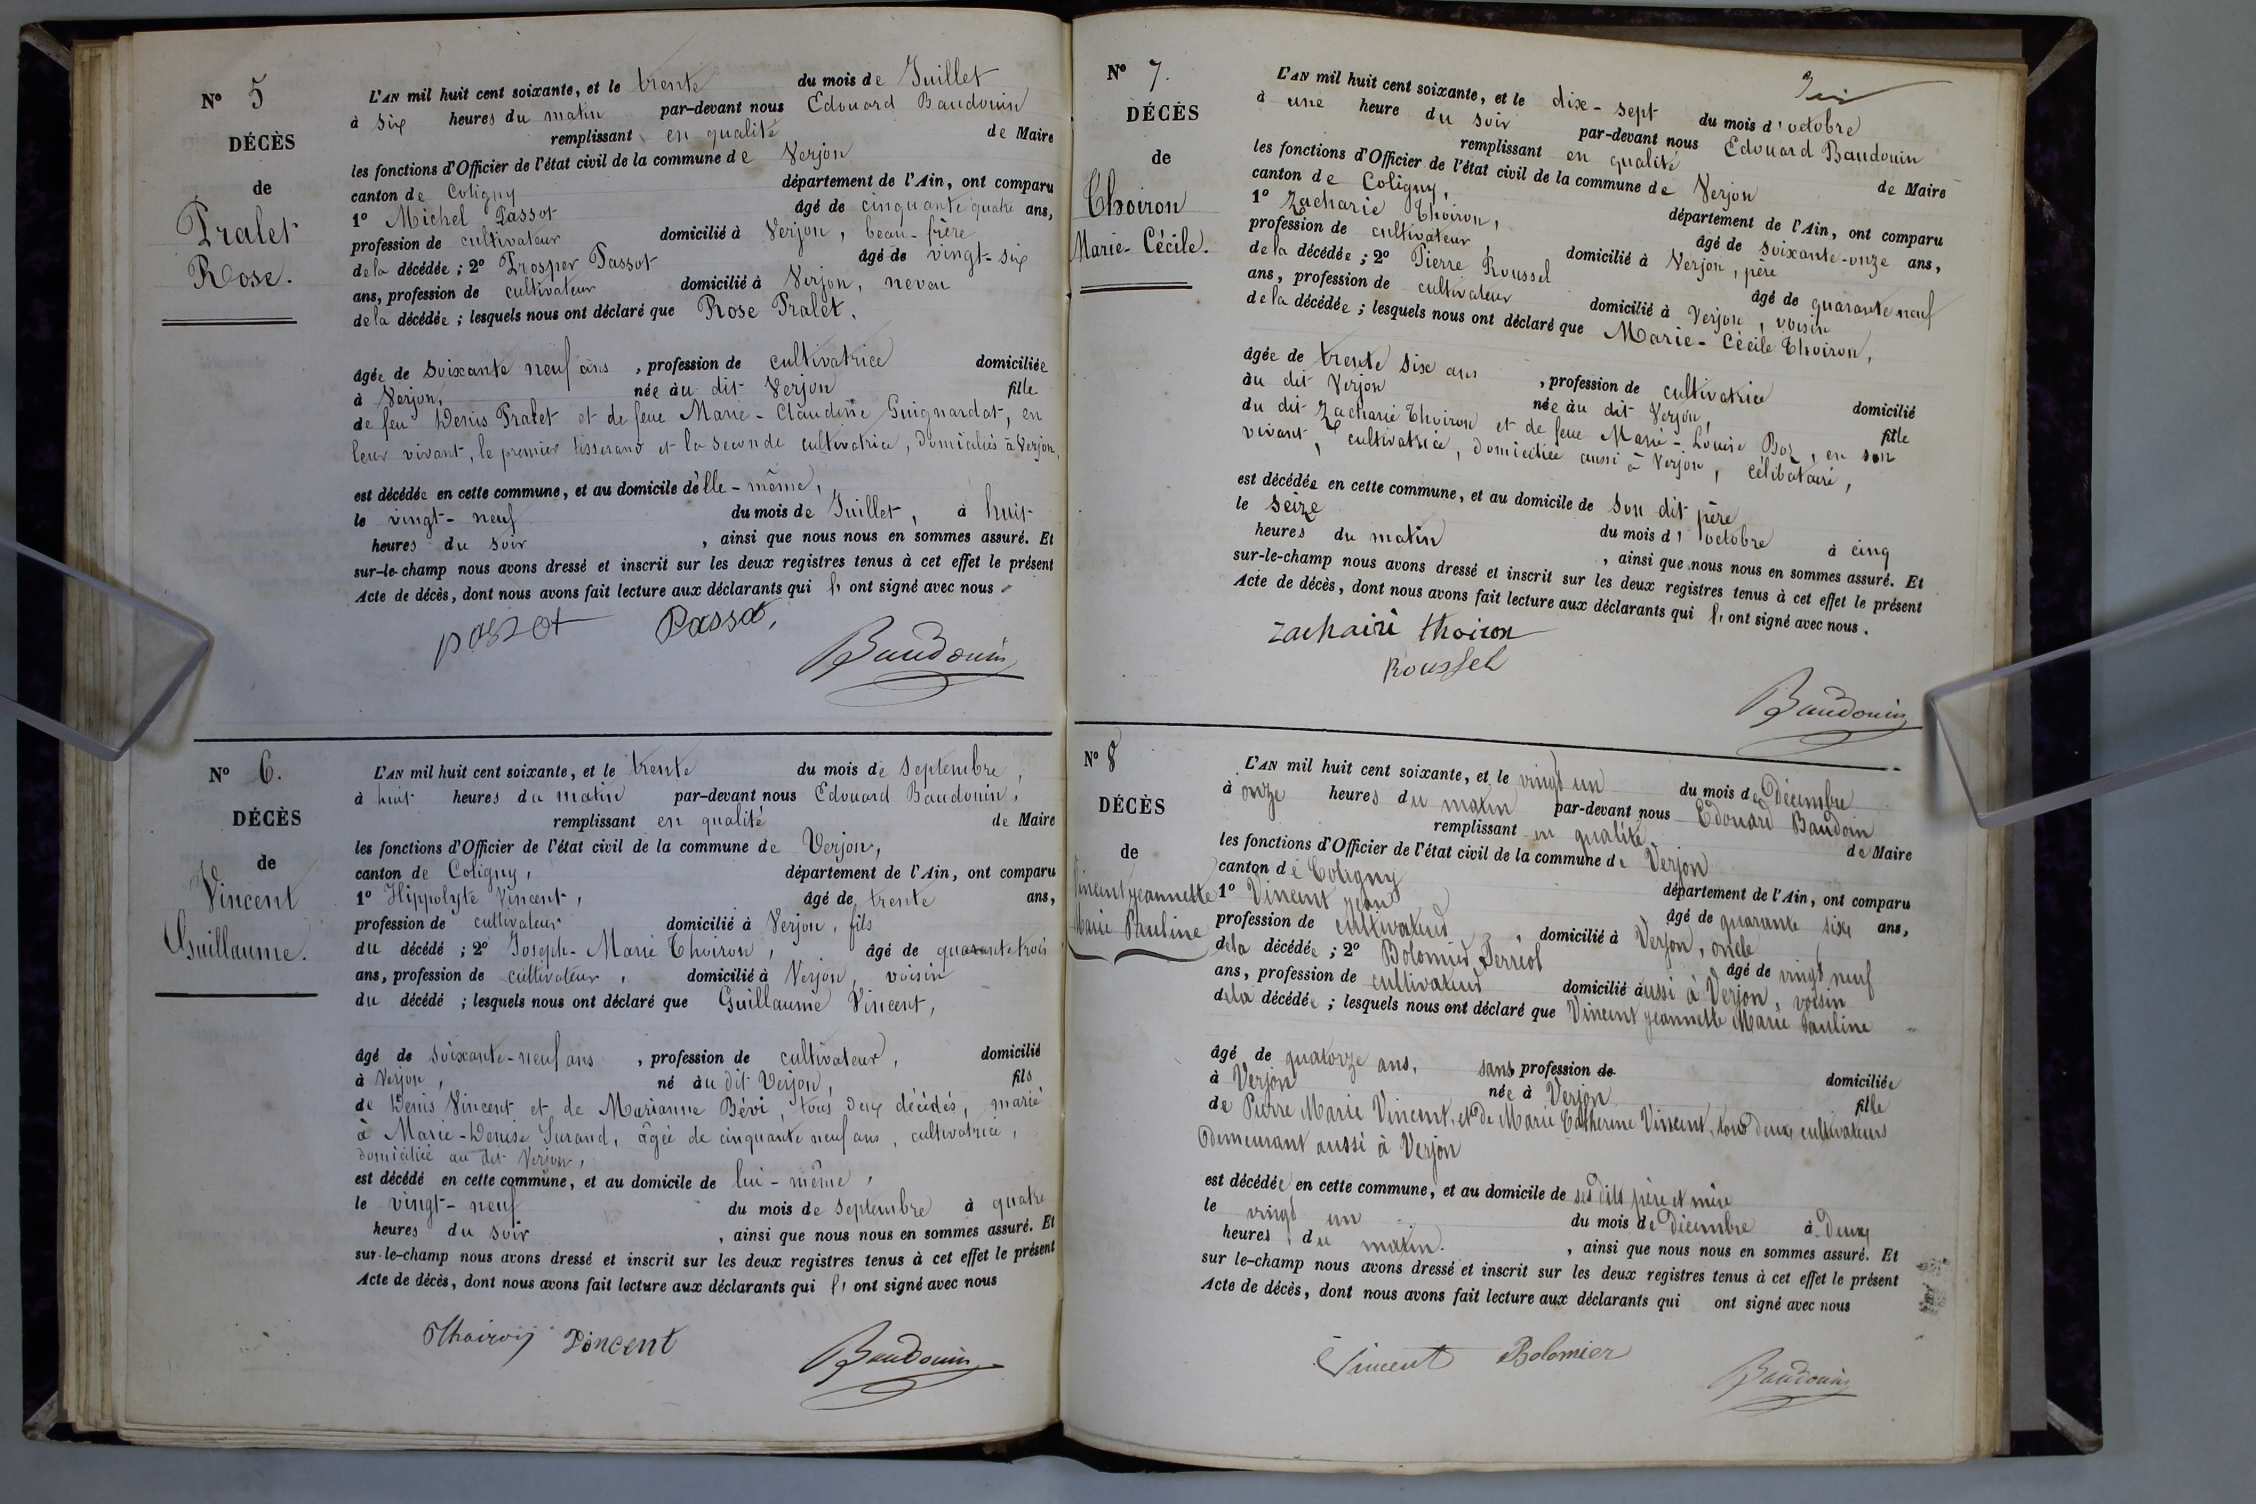 N° 5
DÉCÈS
de
Pralet
Rose.
L'AN mil huit cent soixante, et le trente du mois de Juillet
à six heures du matin par-devant nous Edouard Baudouin
remplissant en qualité de Maire
les fonctions d'Officier de l'état civil de la commune de Verjon
canton de Coligny département de l'Ain, ont comparu
1° Michel Passot âgé de cinquante quatre ans,
profession de cultivateur domicilié à Verjon, beau-frère
de la décédée ; 2° Prosper Passot âgé de vingt-six
ans, profession de cultivateur domicilié à Verjon, neveu
de la décédée ; lesquels nous ont déclaré que Rose Pralet,
âgée de soixante neuf ans , profession de cultivatrice domiciliée
à Verjon, née au dit Verjon fille
de feu Denis Pralet et de feue Marie-Claudine Guignardat, en
leur vivant, le premier tisserand et la seconde cultivatrice, domiciliés à Verjon,
est décédée en cette commune, et au domicile d'elle-même,
le vingt-neuf du mois de Juillet, à huit
heures du soir , ainsi que nous nous en sommes assuré. Et
sur-le-champ nous avons dressé et inscrit sur les deux registres tenus à cet effet le présent
Acte de décès, dont nous avons fait lecture aux déclarants qui l' ont signé avec nous
passot Passot
Baudouin
N° 6.
DÉCÈS
de
Vincent
Guillaume.
L'AN mil huit cent soixante, et le trente du mois de Septembre,
à huit heures du matin par-devant nous Edouard Baudouin,
remplissant en qualité de Maire
les fonctions d'Officier de l'état civil de la commune de Verjon,
canton de Coligny, département de l'Ain, ont comparu
1° Hippolyte Vincent, âgé de trente ans,
profession de cultivateur domicilié à Verjon, fils
du décédé ; 2° Joseph-Marie Thoiron, âgé de quarante trois
ans, profession de cultivateur, domicilié à Verjon voisin
du décédé ; lesquels nous ont déclaré que Guillaume Vincent,
âgé de soixante-neuf ans , profession de cultivateur, domicilié
à Verjon, né au dit Verjon, fils
de Denis Vincent et de Marianne Bévi, tous deux décédés, marié
à Marie-Denise Surand, âgée de cinquante neuf ans, cultivatrice,
domiciliée au dit Verjon,
est décédé en cette commune, et au domicile de lui-même,
le vingt-neuf du mois de Septembre à quatre
heures du soir , ainsi que nous nous en sommes assuré. Et
sur-le-champ nous avons dressé et inscrit sur les deux registres tenus à cet effet le présent
Acte de décès, dont nous avons fait lecture aux déclarants qui l' ont signé avec nous
Thoiron Vincent
Baudouin
N° 7.
DÉCÈS
de
Thoiron
Marie-Cécile.
L'AN mil huit cent soixante, et le dix-sept du mois d'octobre
à une heure du soir par-devant nous Edouard Baudouin
remplissant en qualité de Maire
les fonctions d'Officier de l'état civil de la commune de Verjon
canton de Coligny, département de l'Ain, ont comparu
1° Zacharie Thoiron, âgé de soixante-onze ans,
profession de cultivateur, domicilié à Verjon, père
de la décédée ; 2° Pierre Roussel âgé de quarante neuf
ans, profession de cultivateur domicilié à Verjon, voisin
de la décédée ; lesquels nous ont déclaré que Marie-Cécile Thoiron,
âgée de trente six ans , profession de cultivatrice domicilié
au dit Verjon née au dit Verjon, fille
du dit Zacharie Thoiron et de feue Marie-Louise Boz, en son
vivant, cultivatrice, domiciliée aussi à Verjon, célibataire,
est décédée en cette commune, et au domicile de son dit père
le seize du mois d'octobre à cinq
heures du matin , ainsi que nous nous en sommes assuré. Et
sur-le-champ nous avons dressé et inscrit sur les deux registres tenus à cet effet le présent
Acte de décès, dont nous avons fait lecture aux déclarants qui l' ont signé avec nous.
zachairi thoiron
Roussel
Baudouin
N° 8
DÉCÈS
de
Vincent jeannette
Marie Pauline
L'AN mil huit cent soixante, et le vingt un du mois de Décembre
à onze heures du matin par-devant nous Edouard Baudoin
remplissant en qualité de Maire
les fonctions d'Officier de l'état civil de la commune de Verjon
canton de Coligny département de l'Ain, ont comparu
1° Vincent jean âgé de quarante six ans,
profession de cultivateur, domicilié à Verjon, oncle
de la décédée ; 2° Bolomier Perreol âgé de vingt neuf
ans, profession de cultivateur domicilié aussi à Verjon, voisin
de la décédée ; lesquels nous ont déclaré que Vincent jeannette Marie Pauline
âgé de quatorze ans, sans profession de domiciliée
à Verjon née à Verjon fille
de Pierre Marie Vincent, et de Marie Catherine Vincent, tous deux cultivateurs
demeurant aussi à Verjon
est décédée en cette commune, et au domicile de ses dits père et mère
le vingt un du mois de Décembre à Deux
heures du matin. , ainsi que nous nous en sommes assuré. Et
sur le-champ nous avons dressé et inscrit sur les deux registres tenus à cet effet le présent
Acte de décès, dont nous avons fait lecture aux déclarants qui ont signé avec nous
Vincent Bolomier
Baudouin